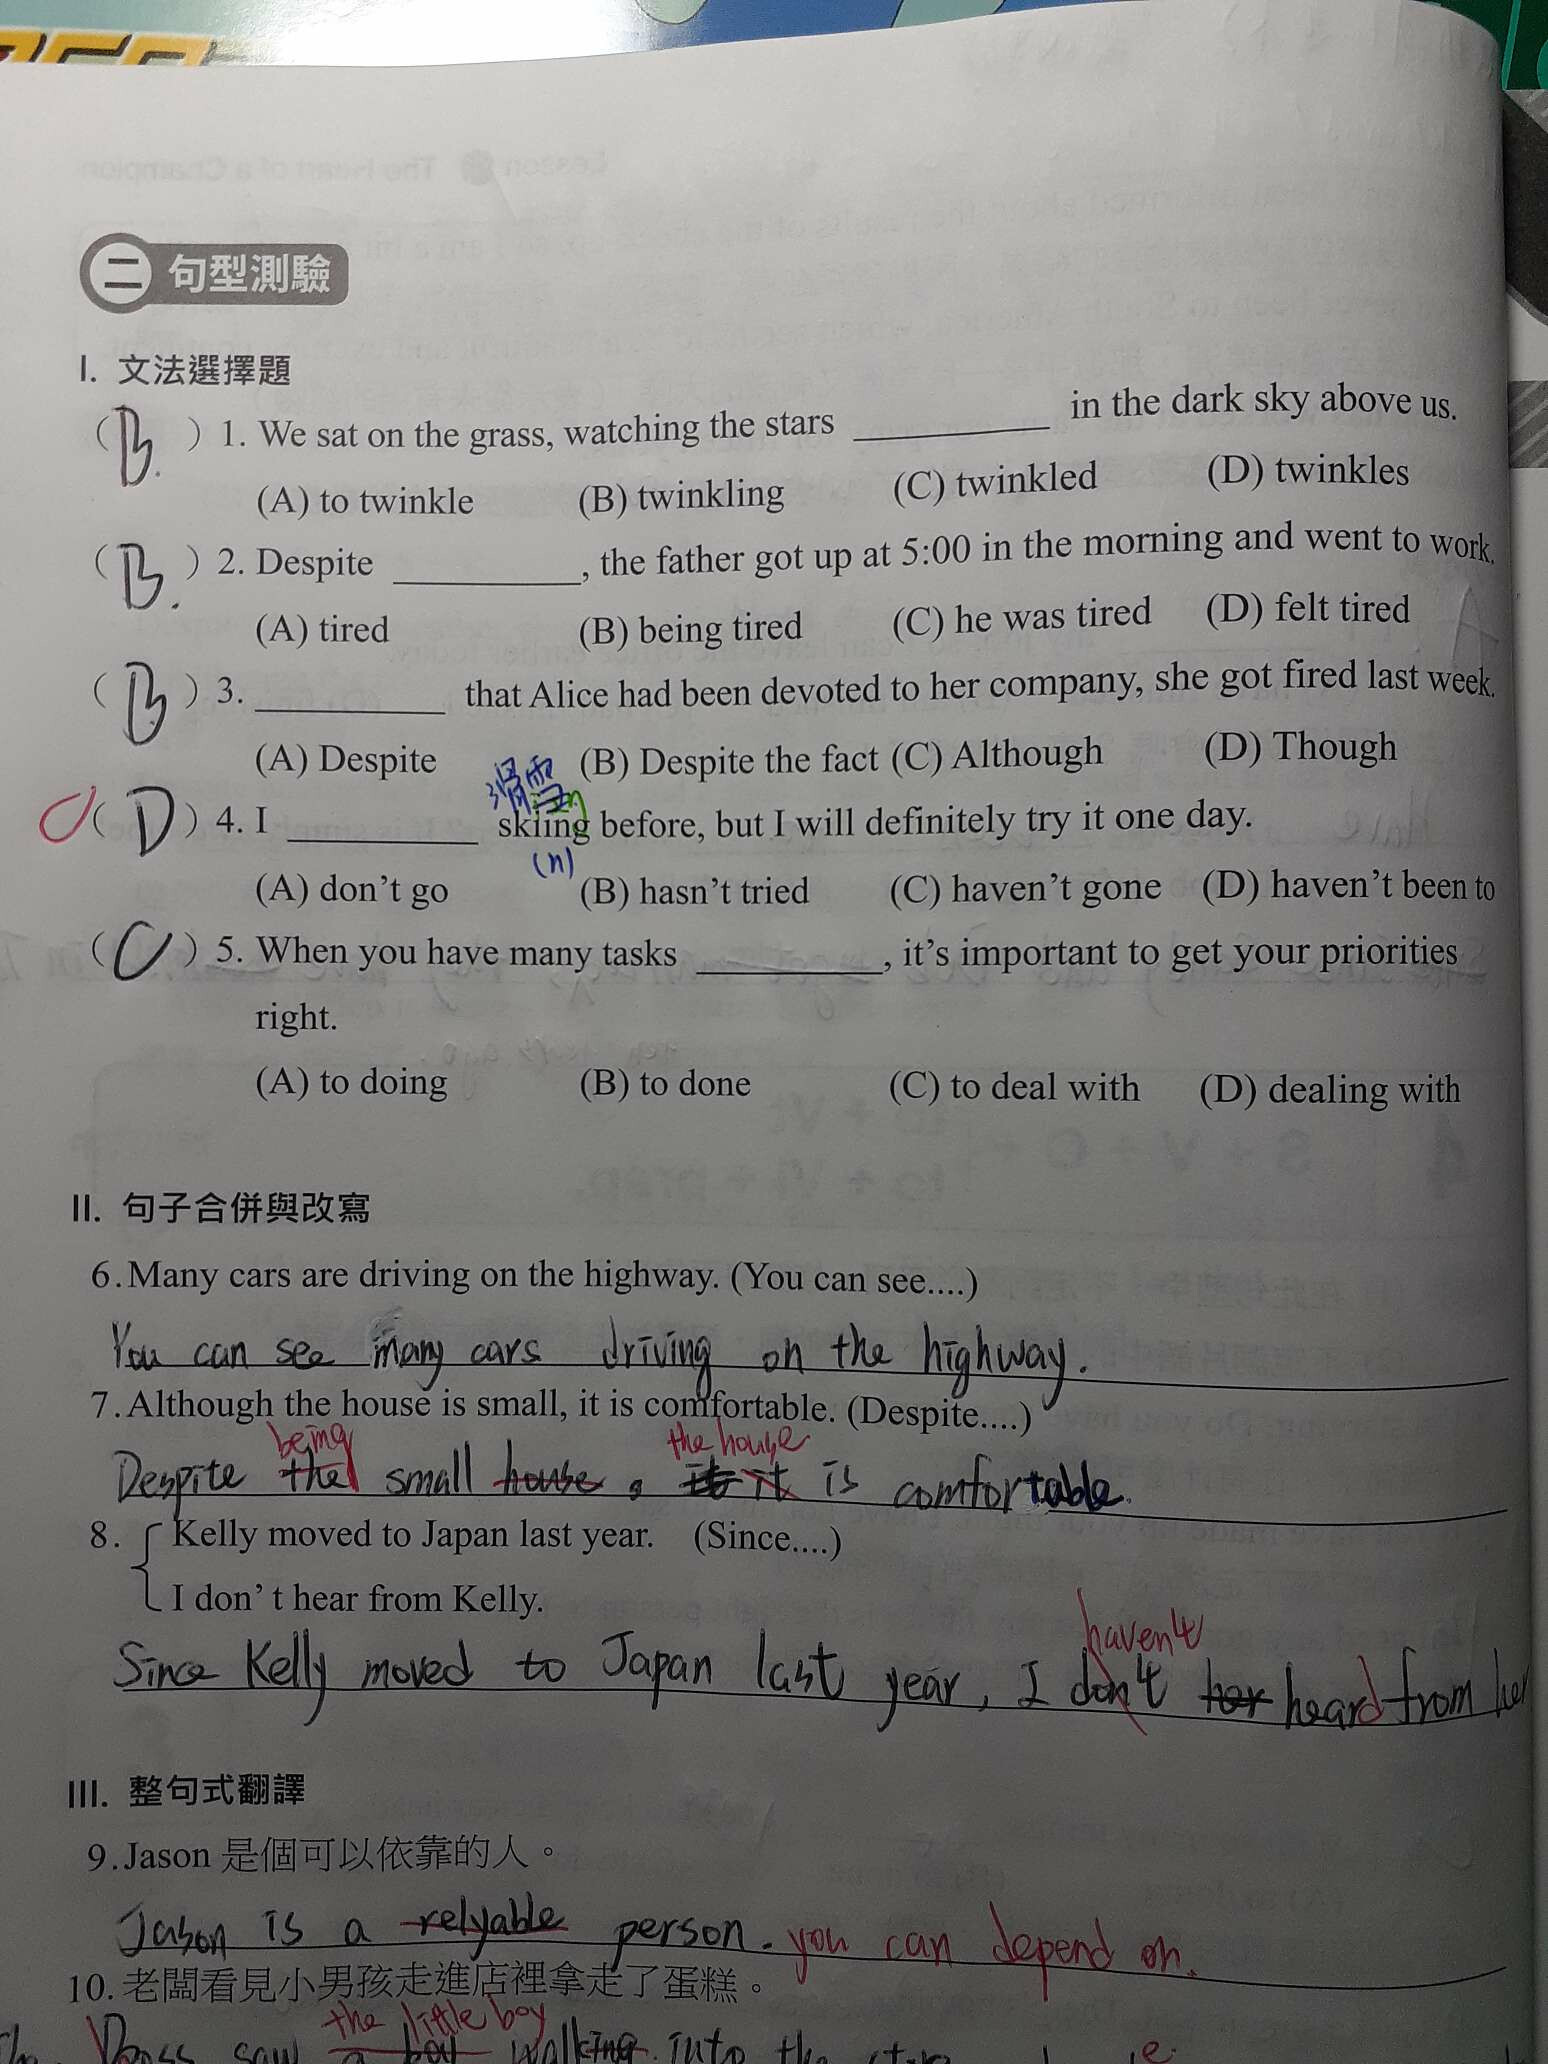 二 句型測驗
I. 文法選擇題
( B. ) 1. We sat on the grass, watching the stars ________ in the dark sky above us.
(A) to twinkle (B) twinkling (C) twinkled (D) twinkles
( B. ) 2. Despite ________, the father got up at 5:00 in the morning and went to work.
(A) tired (B) being tired (C) he was tired (D) felt tired
( B ) 3. ________ that Alice had been devoted to her company, she got fired last week.
(A) Despite (B) Despite the fact (C) Although (D) Though
滑雪
C ( D ) 4. I ________ skiing before, but I will definitely try it one day.
(n)
(A) don't go (B) hasn't tried (C) haven't gone (D) haven't been to
( C ) 5. When you have many tasks ________, it's important to get your priorities
right.
(A) to doing (B) to done (C) to deal with (D) dealing with
II. 句子合併與改寫
6. Many cars are driving on the highway. (You can see....)
You can see many cars driving on the highway.
7. Although the house is small, it is comfortable. (Despite....)
being the house
Despite the small house, it it is comfortable.
8. Kelly moved to Japan last year. (Since....)
I don't hear from Kelly.
haven't
Since Kelly moved to Japan last year, I don't her heard from her
III. 整句式翻譯
9. Jason 是個可以依靠的人。
Jason is a relyable person. you can depend on.
10. 老闆看見小男孩走進店裡拿走了蛋糕。
the little boy
Boss saw a boy walking into the store